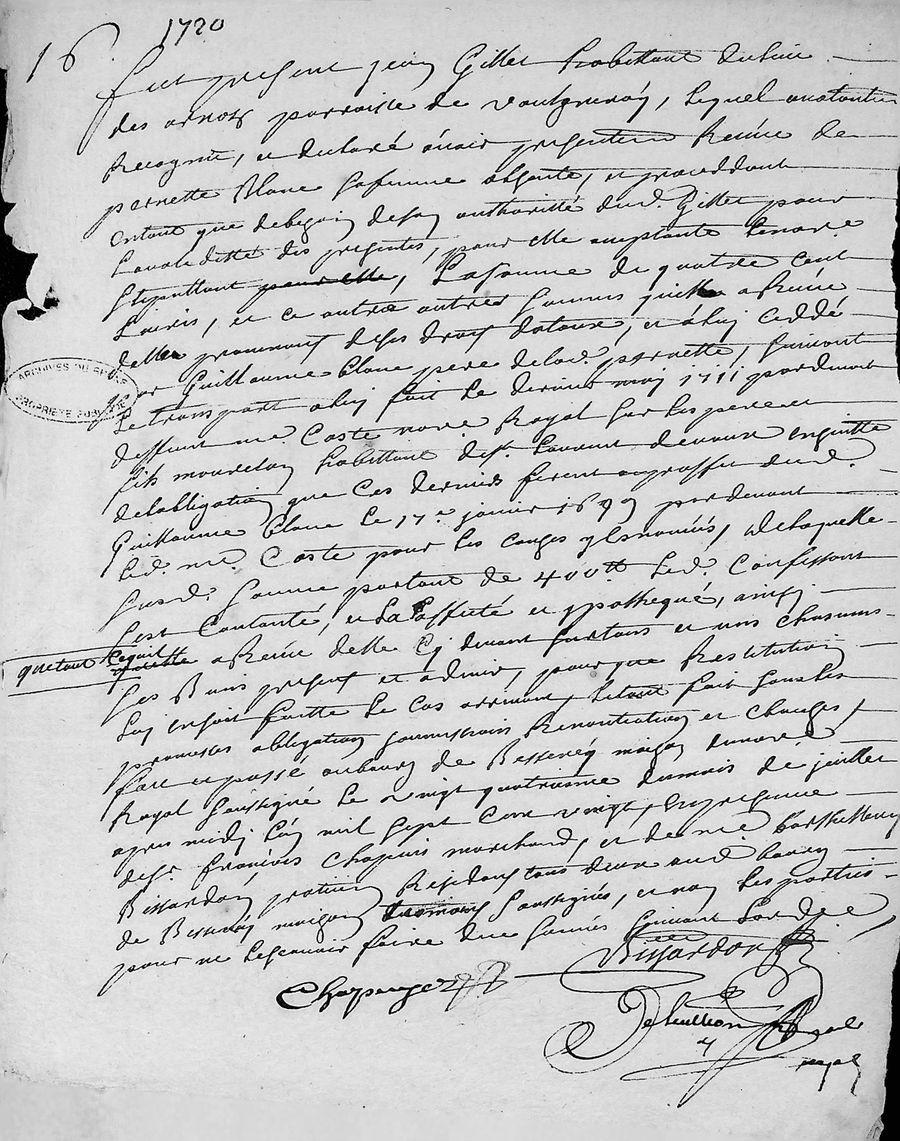 16 1720
fut present jean Gillet habittant du lieu
des arnots parroisse de vaulgneray, lequel
Recognu, et declaré avoir presentem Receu de
pernette Blanc sa femme absente, et proceddant
entant que de besoin de son authoritté dud. Gillet pour
la validitté des presentes, pour elle acceptante le no.re
stipullant pour elle, La somme de quatre cent
Livres, et ce outre autres sommes quil a Receu
delle provenant de ses droits dotaux, et a luy ceddé
par Guillaume blanc pere de lad. pernette, suivant
Le transport a luy fait le dernier may 1711 pardevant
deffunt me. Coste no.re Royal sur les pere et
fils mourelon habittant de St. Laurent
de lobligation que ces derniers firent au proffit dud.
Guillaume blanc le 17e janvier 1699 pardevant
led. me. Coste pour les causes y enoncées, de laquelle
susd. somme portant de 400tt led. Confessant
sest Contanté, et la affecté et ypothequé, ainsy
que tout ce quil a Receu delle cy devant sur tous et uns chacuns
ses Biens present et advenir, pour que Restitution
luy en soit faitte le cas arrivant, le tout fait sous les
promesses obligation soumissions Renontiation et clauses,
fait et passé au bourg de Bessenay maison du no.re
Royal soussigné le vingt quatriesme du mois de juillet
apres midy lan mil sept cent vingt, en presence
de sr. francois Chapuis marchand, et de me. barthellemy
Bissardon praticien Residans tous deux aud. bourg
de Bessenay temoins soussignés, et non les parties
pour ne scavoir faire
Chapuys
Bissardon
Royal
ARCHIVES DU RHÔNE
PROPRIÉTÉ PUBLIQUE